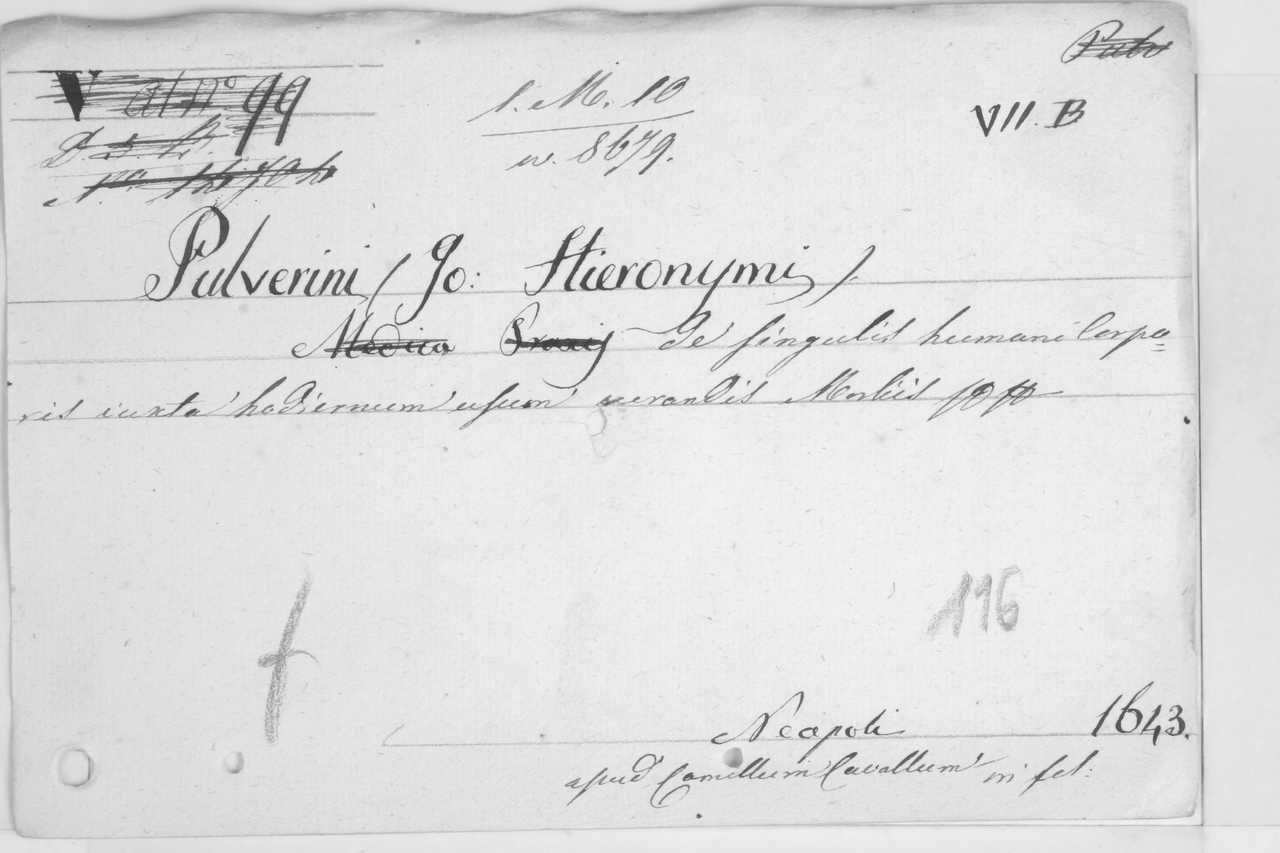 Pulv
V al N.º 99
1. M. 10
VII. B
n. 8679.
Pulverini (Jo: Hieronymi)
Medica Praxis De singulis humani Corpo=
ris iuxta hodiernum usum curandis Morbis
116
Neapoli 1643.
apud Camillum Cavallum in fol: